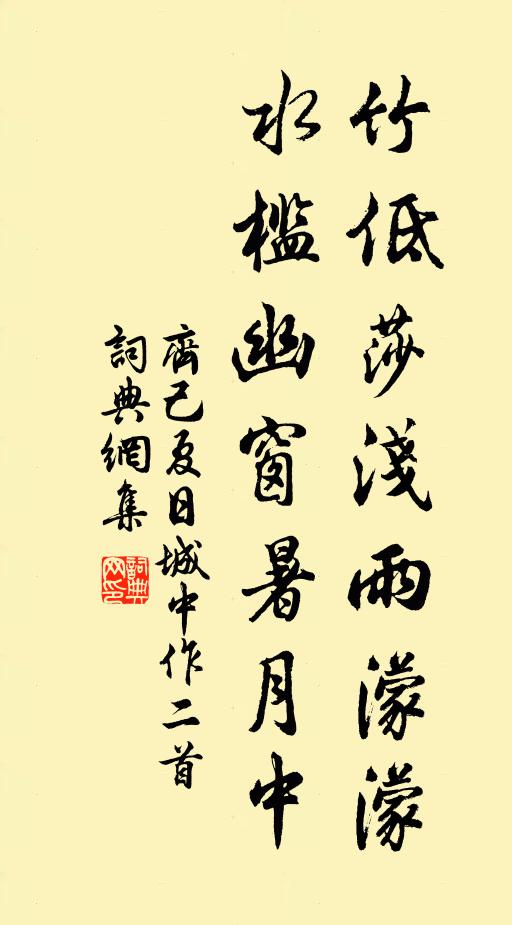 竹低莎淺雨濛濛
水檻幽窗暑月中
齊己夏日城中作二首
詞典網集
詞典網印